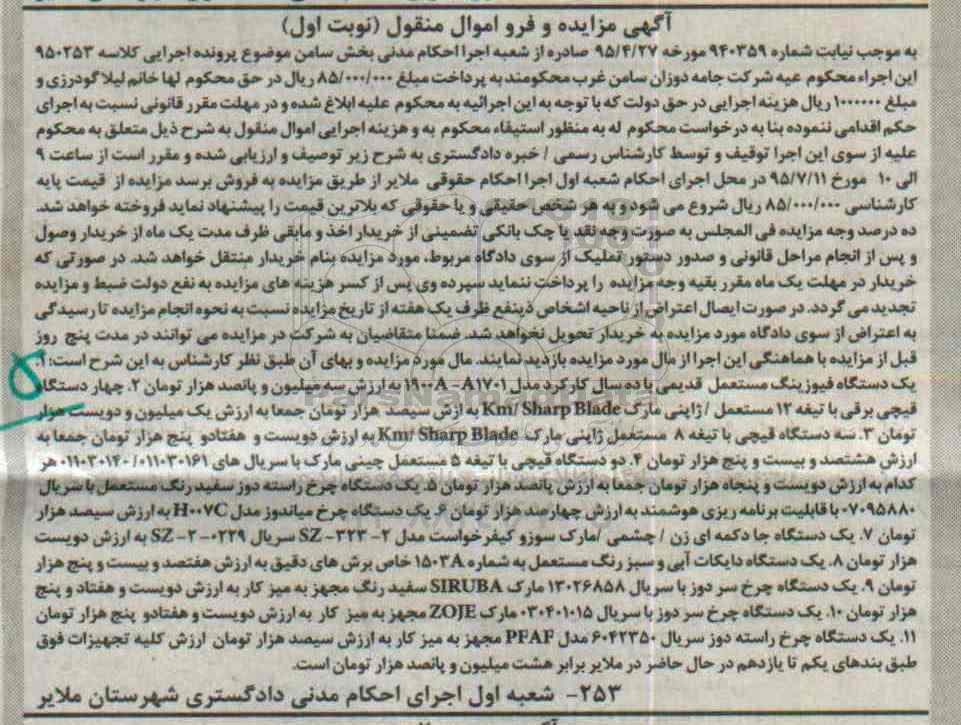 آگهی مزایده و فرو اموال منقول (نوبت اول)
به موجب نیابت شماره ۹۴۰۳۵۹ مورخه ۹۵/۴/۲۷ صادره از شعبه اجرا احکام مدنی بخش سامن موضوع پرونده اجرایی کلاسه ۹۵۰۲۵۳
این اجراء محکوم عیه شرکت جامه دوزان سامن غرب محکومند به پرداخت مبلغ ۸۵/۰۰۰/۰۰۰ ریال در حق محکوم لها خانم لیلا گودرزی و
مبلغ ۱۰۰۰۰۰۰ ریال هزینه اجرایی در حق دولت که با توجه به این اجرائیه به محکوم علیه ابلاغ شده و در مهلت مقرر قانونی نسبت به اجرای
حکم اقدامی ننموده بنا به درخواست محکوم له به منظور استیفاء محکوم به و هزینه اجرایی اموال منقول به شرح ذیل متعلق به محکوم
علیه از سوی این اجرا توقیف و توسط کارشناس رسمی / خبره دادگستری به شرح زیر توصیف و ارزیابی شده و مقرر است از ساعت ۹
الی ۱۰ مورخ ۹۵/۷/۱۱ در محل اجرای احکام شعبه اول اجرا احکام حقوقی ملایر از طریق مزایده به فروش برسد مزایده از قیمت پایه
کارشناسی ۸۵/۰۰۰/۰۰۰ ریال شروع می شود و به هر شخص حقیقی و یا حقوقی که بلاترین قیمت را پیشنهاد نماید فروخته خواهد شد.
ده درصد وجه مزایده فی المجلس به صورت وجه نقد یا چک بانکی تضمینی از خریدار اخذ و مابقی ظرف مدت یک ماه از خریدار وصول
و پس از انجام مراحل قانونی و صدور دستور تملیک از سوی دادگاه مربوط، مورد مزایده بنام خریدار منتقل خواهد شد. در صورتی که
خریدار در مهلت یک ماه مقرر بقیه وجه مزایده را پرداخت ننماید سپرده وی پس از کسر هزینه های مزایده به نفع دولت ضبط و مزایده
تجدید می گردد. در صورت ایصال اعتراض از ناحیه اشخاص ذینفع ظرف یک هفته از تاریخ مزایده نسبت به نحوه انجام مزایده تا رسیدگی
به اعتراض از سوی دادگاه مورد مزایده به خریدار تحویل نخواهد شد. ضمنا متقاضیان به شرکت در مزایده می توانند در مدت پنج روز
قبل از مزایده با هماهنگی این اجرا از مال مورد مزایده بازدید نمایند. مال مورد مزایده و بهای آن طبق نظر کارشناس به این شرح است: ۱.
یک دستگاه فیوزینگ مستعمل قدیمی با ده سال کارکرد مدل ۱۹۰۰A -A۱۷۰۱ به ارزش سه میلیون و پانصد هزار تومان ۲. چهار دستگاه
قیچی برقی با تیغه ۱۲ مستعمل / ژاپنی مارک Km/ Sharp Blade به ازش سیصد هزار تومان جمعا به ارزش یک میلیون و دویست هزار
تومان ۳. سه دستگاه قیچی با تیغه ۸ مستعمل ژاپنی مارک Km/ Sharp Blade به ارزش دویست و هفتادو پنج هزار تومان جمعا به
ارزش هشتصد و بیست و پنج هزار تومان ۴. دو دستگاه قیچی با تیغه ۵ مستعمل چینی مارک با سریال های ۰۱۱۰۳۰۱۶۱/ ۰۱۱۰۳۰۱۴۰ هر
کدام به ارزش دویست و پنجاه هزار تومان جمعا به ارزش پانصد هزار تومان ۵. یک دستگاه چرخ راسته دوز سفید رنگ مستعمل با سریال
۰۷۰۹۵۸۸۰ با قابلیت برنامه ریزی هوشمند به ارزش چهارصد هزار تومان ۶. یک دستگاه چرخ میاندوز مدل H۰۰۷C به ارزش سیصد هزار
تومان ۷. یک دستگاه جا دکمه ای زن / چشمی /مارک سوزو کیفرخواست مدل ۲- SZ -۳۲۳ سریال ۰۲۲۹-SZ -۲ به ارزش دویست
هزار تومان ۸. یک دستگاه دایکات آبی و سبز رنگ مستعمل به شماره ۱۵۰۳A خاص برش های دقیق به ارزش هفتصد و بیست و پنج هزار
تومان ۹. یک دستگاه چرخ سر دوز با سریال ۱۳۰۲۶۸۵۸ مارک SIRUBA سفید رنگ مجهز به میز کار به ارزش دویست و هفتاد و پنج
هزار تومان ۱۰. یک دستگاه چرخ سر دوز با سریال ۰۳۰۴۰۱۰۱۵ مارک ZOJE مجهز به میز کار به ارزش دویست و هفتادو پنج هزار تومان
۱۱. یک دستگاه چرخ راسته دوز سریال ۶۰۴۲۳۵۰ مدل PFAF مجهز به میز کار به ارزش سیصد هزار تومان ارزش کلیه تجهیزات فوق
طبق بندهای یکم تا یازدهم در حال حاضر در ملایر برابر هشت میلیون و پانصد هزار تومان است.
۲۵۳- شعبه اول اجرای احکام مدنی دادگستری شهرستان ملایر